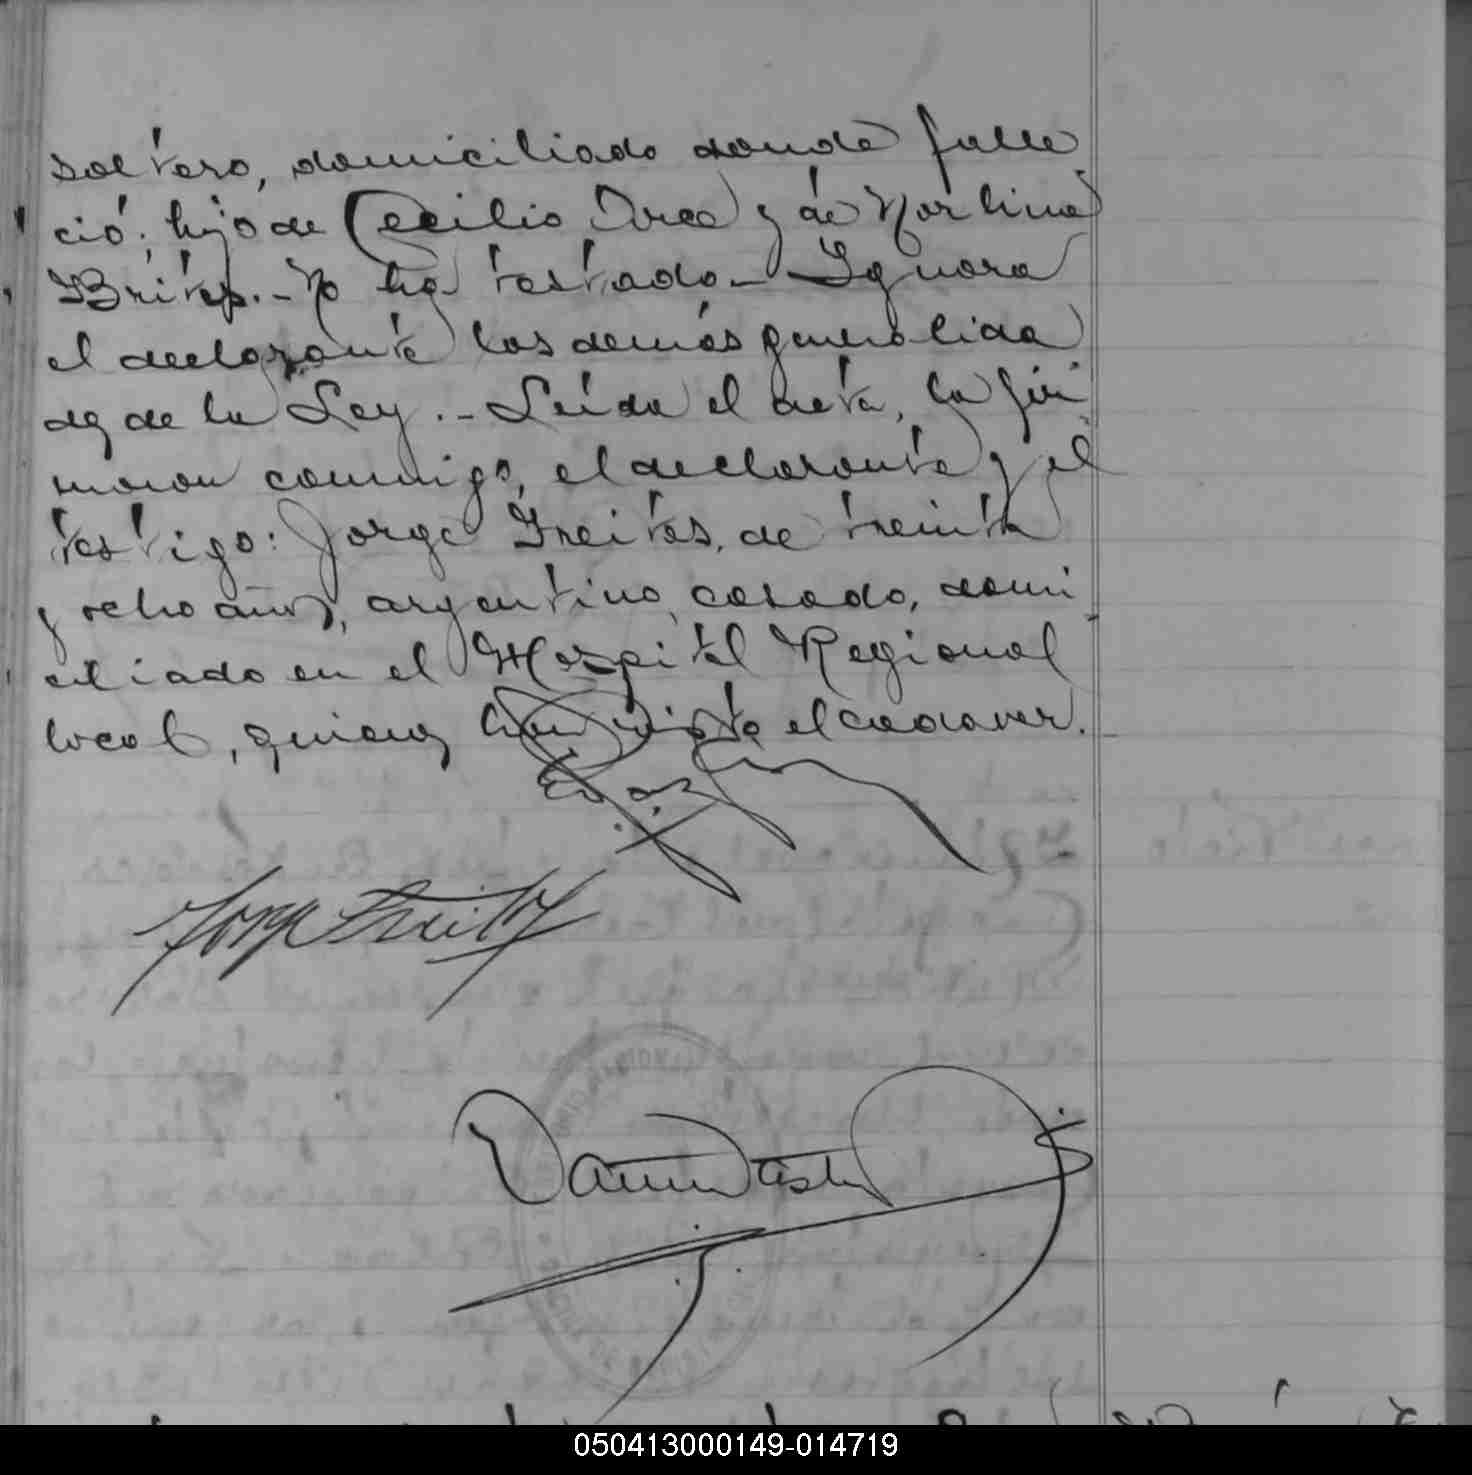 soltero, domiciliado donde falle
ció; hijo de Cecilio Arce y de Martina
Britez.- No ha testado.- Ignora
el declarante las demás generalida
des de la Ley.- Leída el acta, la fir
maron conmigo, el declarante y el
testigo: Jorge Freitas, de treinta
y ocho años, argentino, casado, domi
ciliado en el Hospital Regional
local, quienes han visto el cadaver.
Jorge Freitas
050413000149-014719